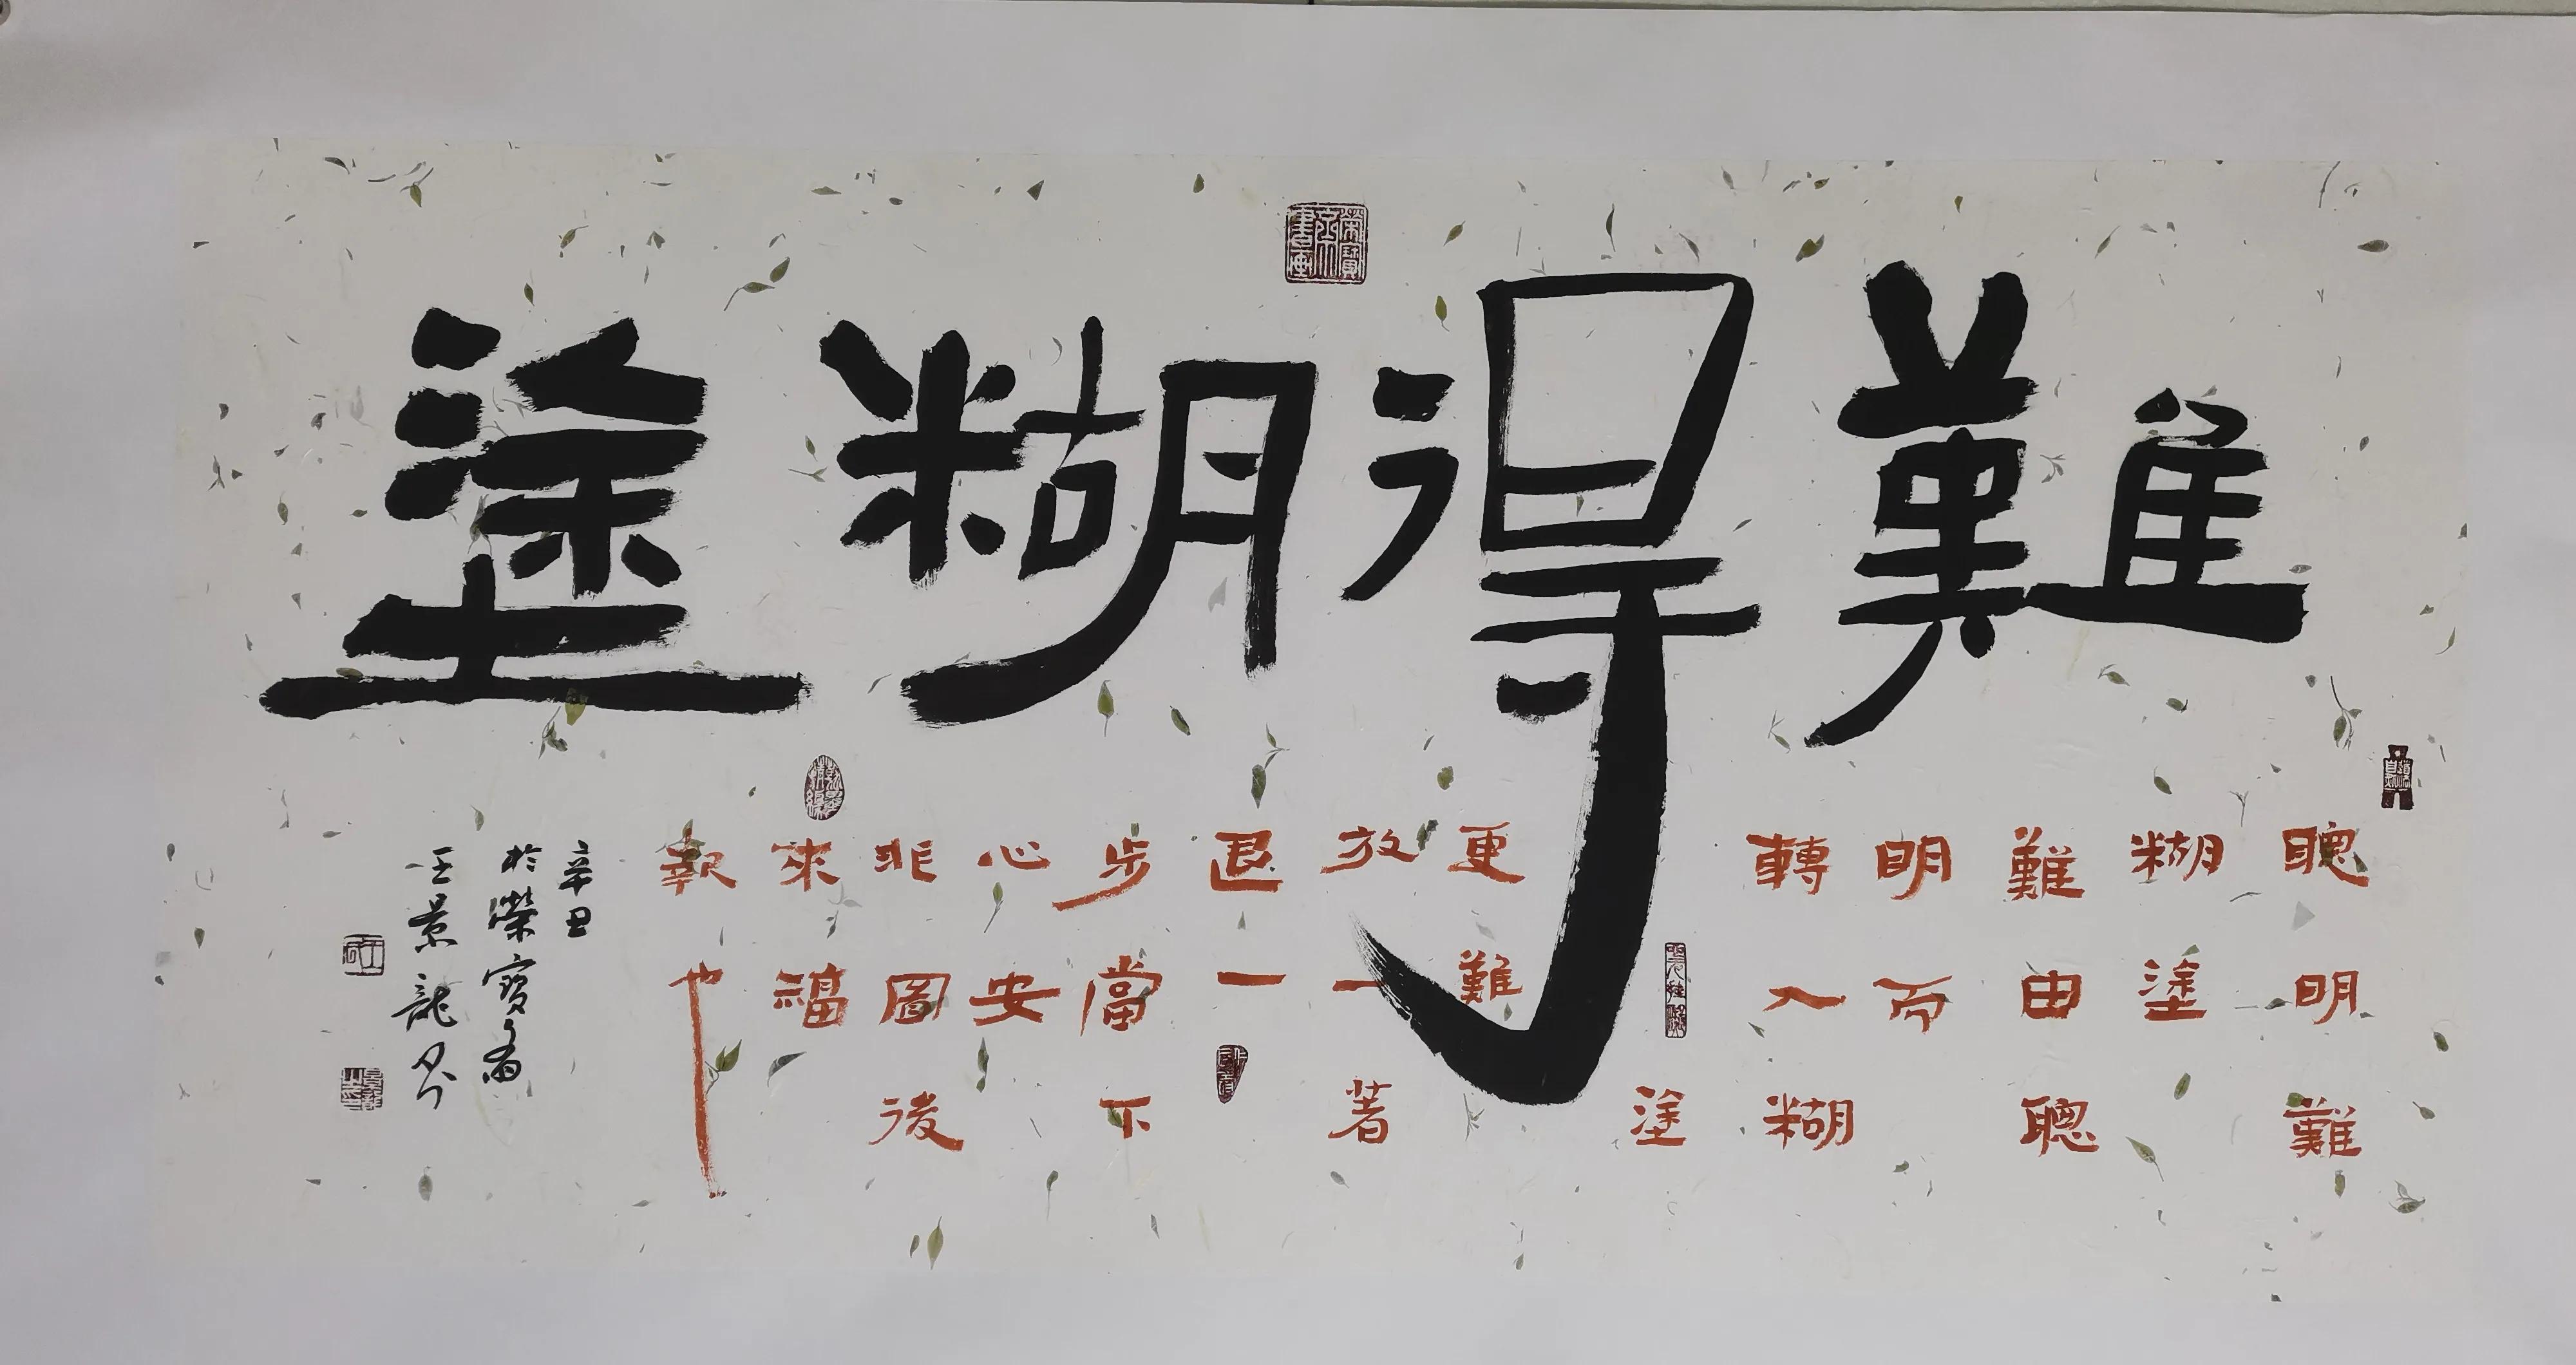 難得糊塗
聰明難
糊塗
難由聰
明而
轉入糊
塗
更難
放一著
退一
步當下
心安
非圖後
來福
報也
辛丑
於榮寶齋
王景龍